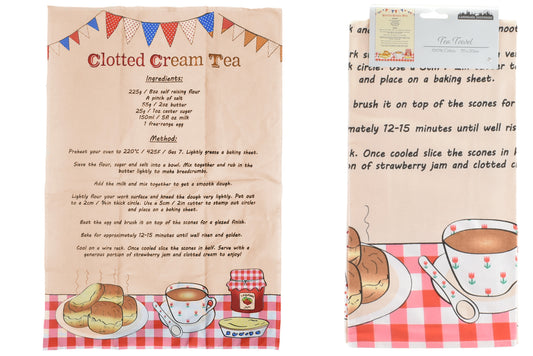 Clotted Cream Tea
Ingredients:
225g / 8oz self raising flour
A pinch of salt
55g / 2oz butter
25g / 1oz caster sugar
150ml / 5fl oz milk
1 free-range egg
Method:
Preheat your oven to 220°C / 425F / Gas 7. Lightly grease a baking sheet.
Sieve the flour, sugar and salt into a bowl. Mix together and rub in the
butter lightly to make breadcrumbs.
Add the milk and mix together to get a smooth dough.
Lightly flour your work surface and knead the dough very lightly. Pat out
to a 2cm / ¾in thick circle. Use a 5cm / 2in cutter to stamp out circles
and place on a baking sheet.
Beat the egg and brush it on top of the scones for a glazed finish.
Bake for approximately 12-15 minutes until well risen and golden.
Cool on a wire rack. Once cooled slice the scones in half. Serve with a
generous portion of strawberry jam and clotted cream to enjoy!
Clotted Cream Tea
Tea Towel
100% Cotton
rk and
very
k circle. Use a 5cm / 2in
and place on a baking sheet.
brush it on top of the scones for
mately 12-15 minutes until well ris
k. Once cooled slice the scones in h
on of strawberry jam and clotted c